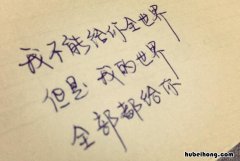 我不能给你全世界
但是 我的世界
全部都给你
hubeihong.com